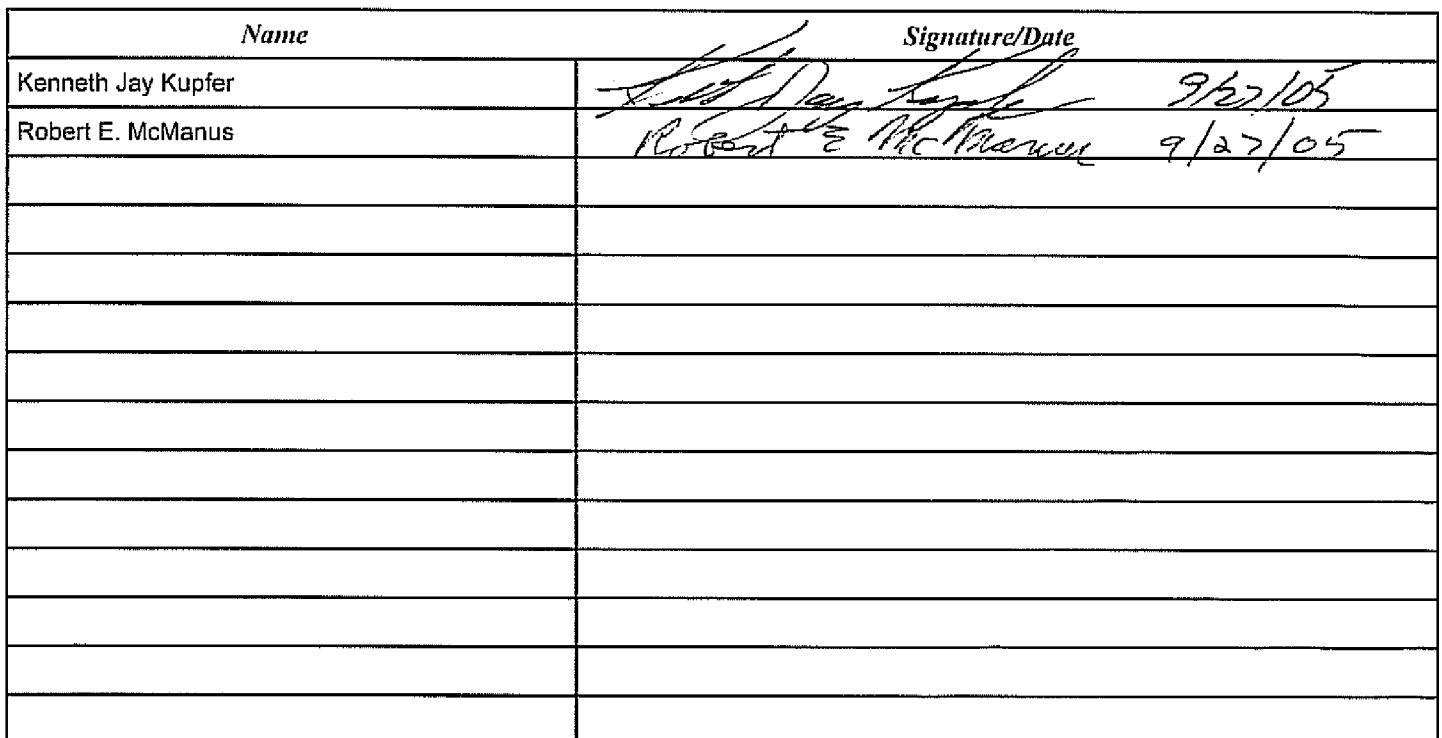 Name Signature/Date
Kenneth Jay Kupfer Jay Kupfer 9/27/05
Robert E. McManus Robert E McManus 9/27/05